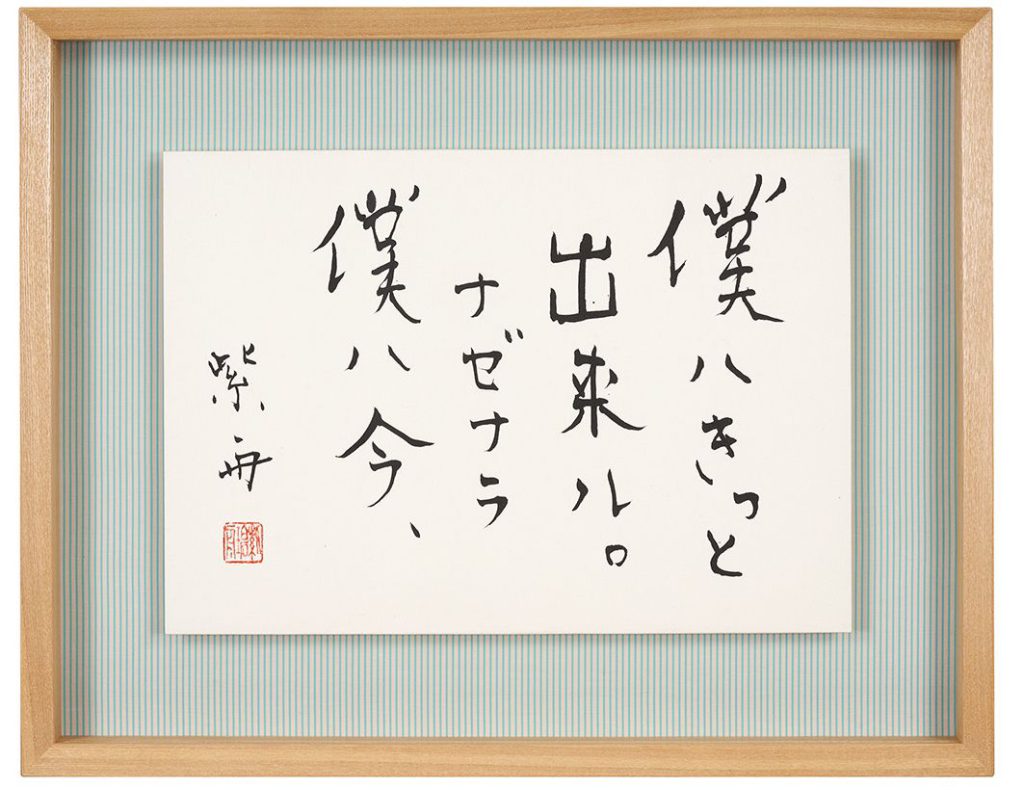 僕ハきっと
出来ル。
ナゼナラ
僕ハ今、
紫舟